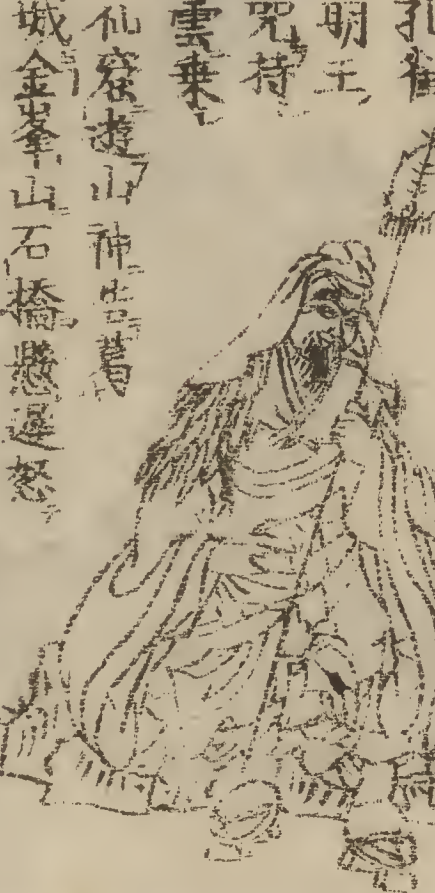 孔雀
明王
咒持
雲乗
仙窟遊山神告葛
城金峯山石橋懸遅怒